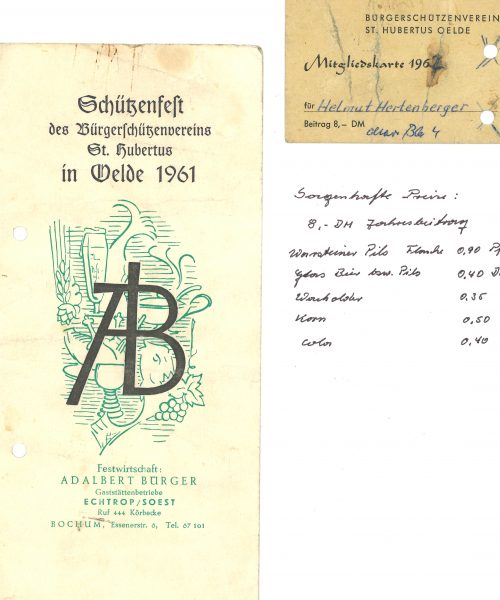 Schützenfest
des Bürgerschützenvereins
St. Hubertus
in Oelde 1961
AB
Festwirtschaft:
ADALBERT BÜRGER
Gaststättenbetriebe
ECHTROP/SOEST
Ruf 444 Körbecke
BOCHUM, Essenerstr. 6, Tel. 67 101
BÜRGERSCHÜTZENVEREIN
ST. HUBERTUS OELDE
Mitgliedskarte 1962
für Helmut Hertenberger
Beitrag 8,– DM
Sagenhafte Preise:
8,- DM Jahresbeitrag
Warsteiner Pils Flasche 0,90 Pf
Glas Bier bzw. Pils 0,40 D
Wacholder 0,35
Korn 0,50
Cola 0,40